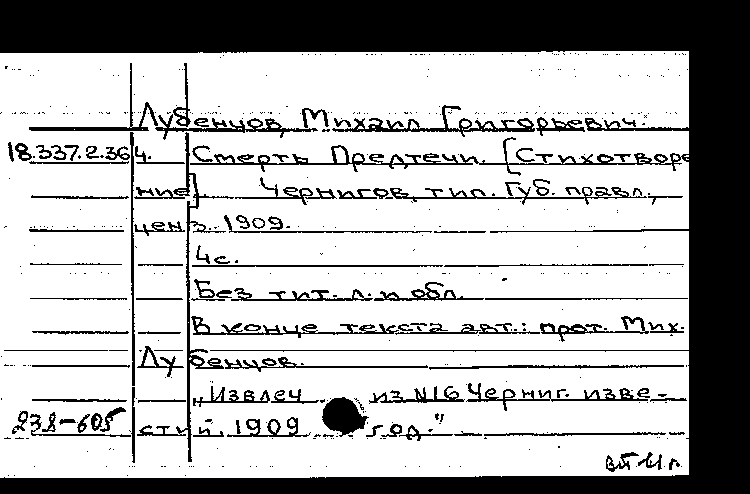 Лубенцов, Михаил Григорьевич.
18.337.2.364. Смерть Предтечи. [Стихотворе
ние]. Чернигов, тип. Губ. правл.,
ценз. 1909.
4 с.
Без тит. л. и обл.
В конце текста авт.: прот. Мих.
Лубенцов.
„Извлеч из №16 Черниг. изве-
238-605 стий. 1909 год."